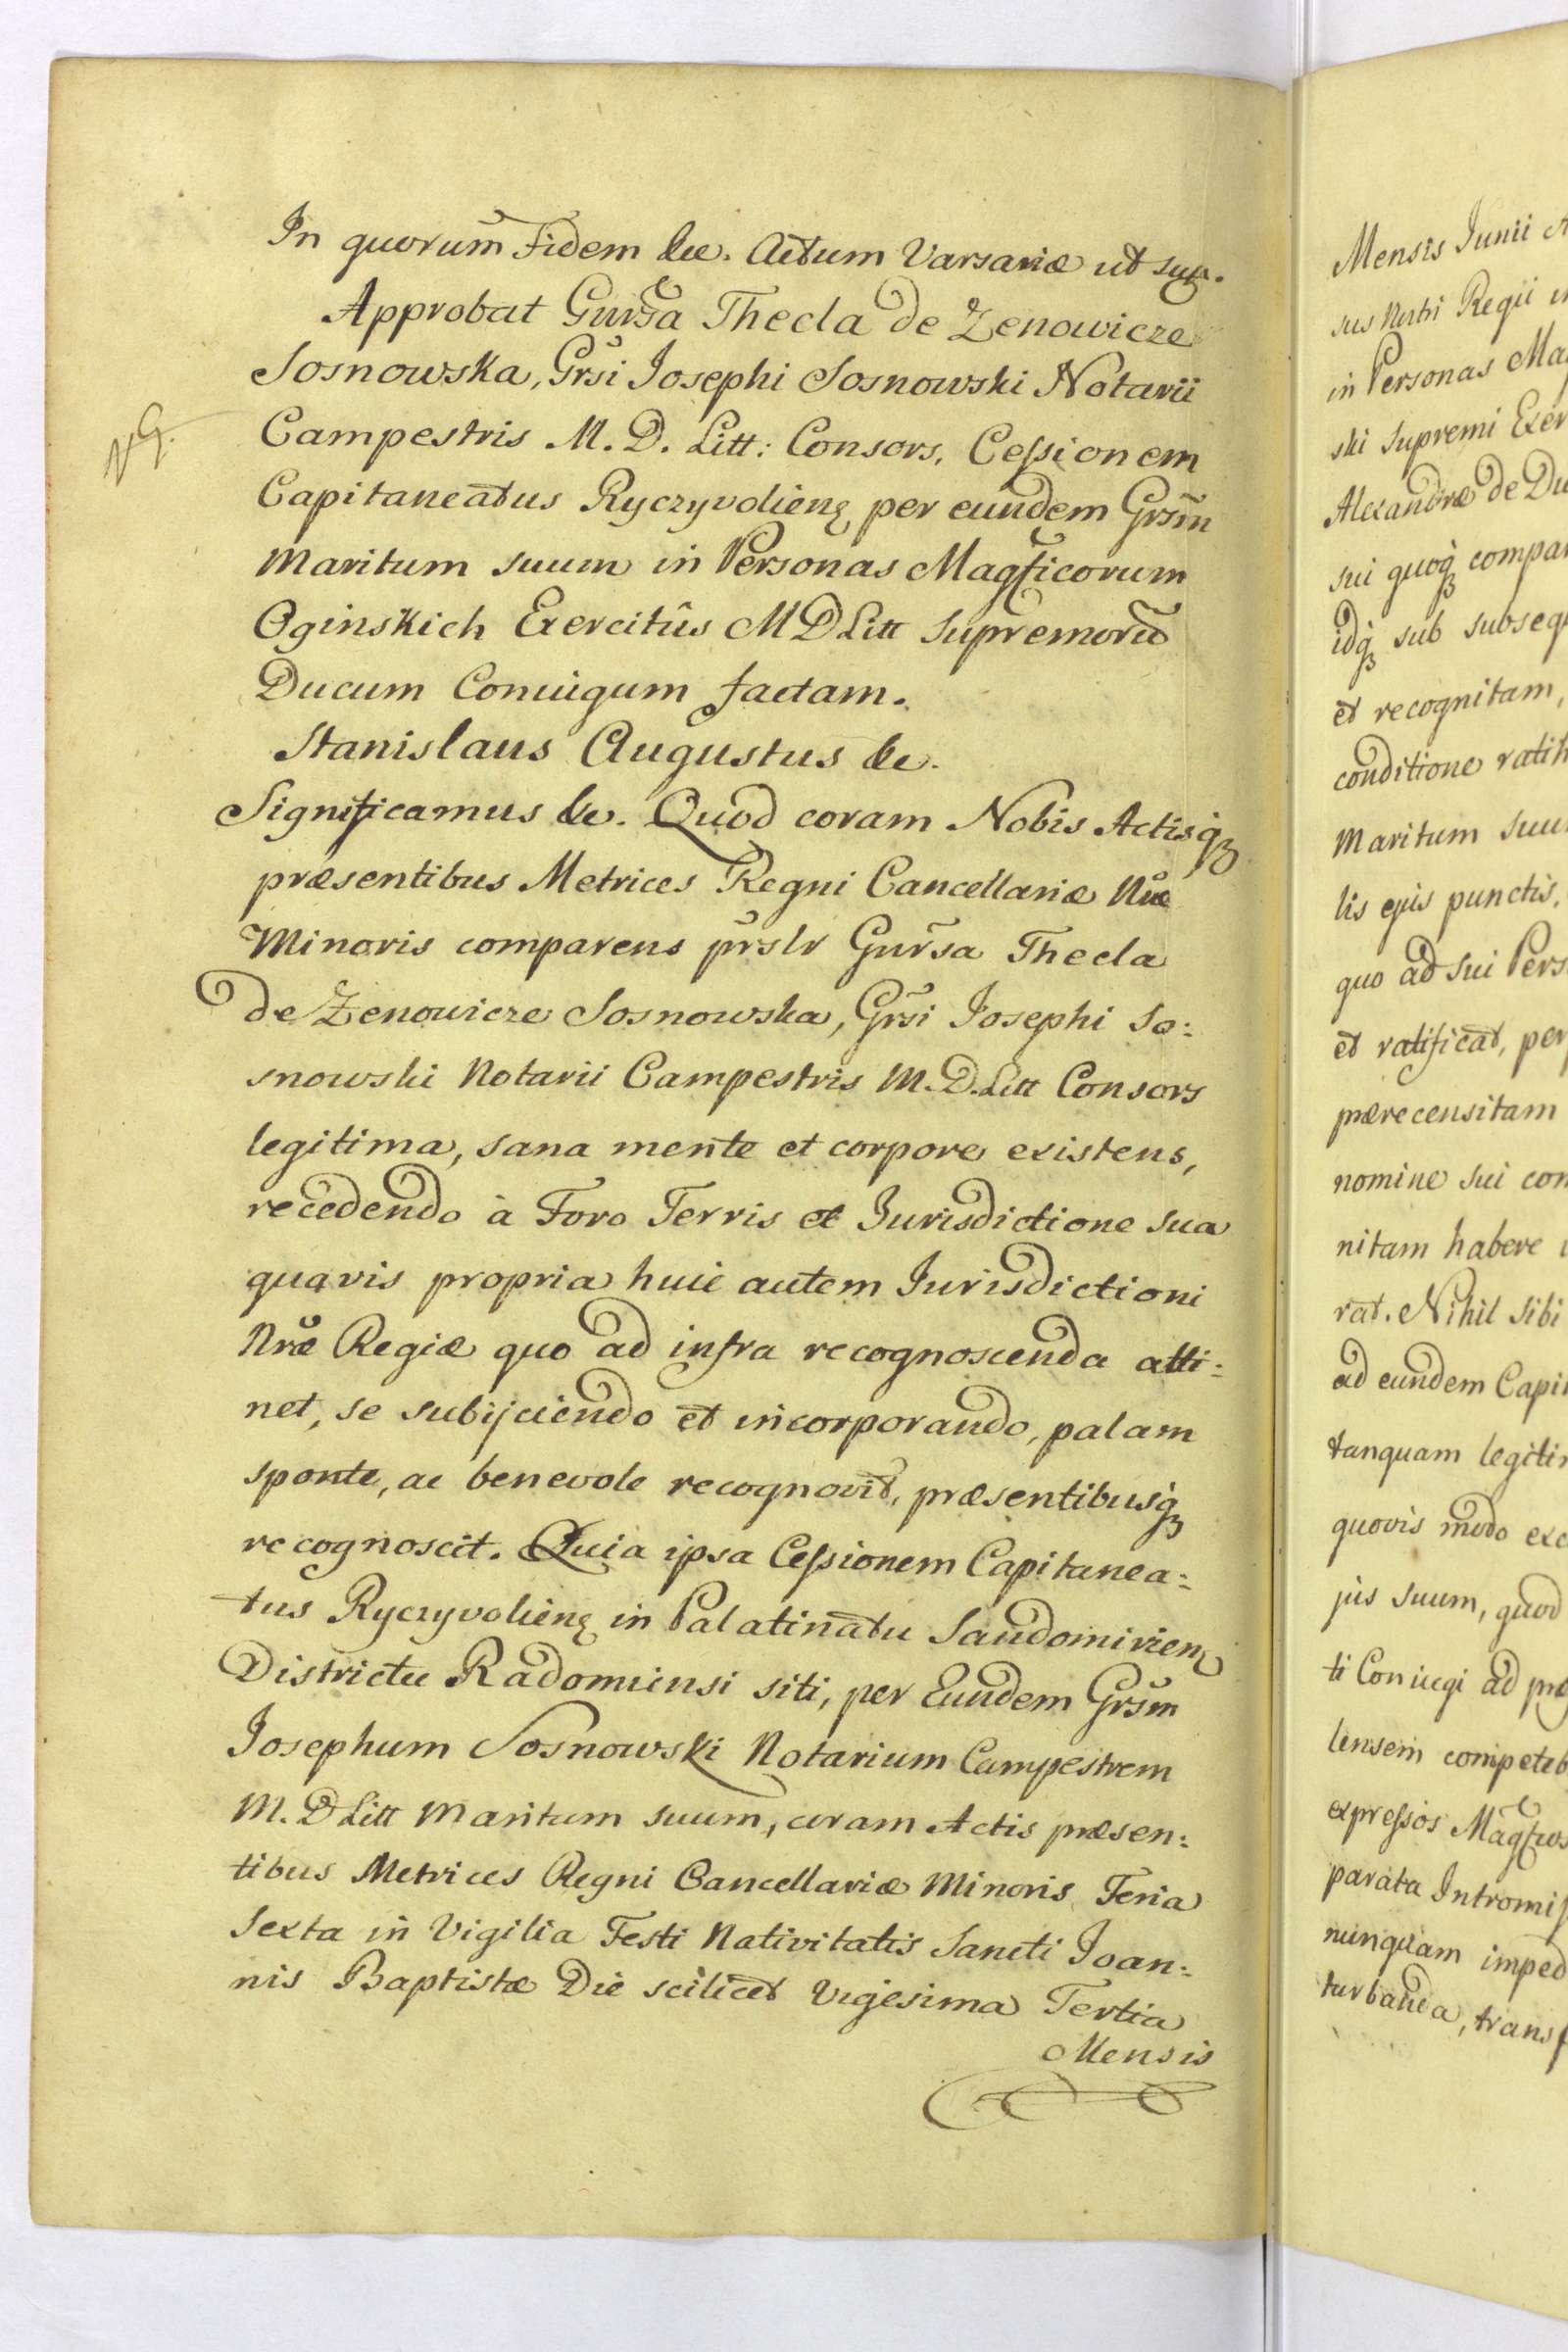 In quorum Fidem &c. Actum Varsaviæ ut sup.
Approbat Gnrsa Thecla de Zenowicze
Sosnowska, Grsi Josephi Sosnowski Notarii
Campestris M. D. Litt: Consors, Cessionem
Capitaneatus Ryczyvolieng per eundem Grsm
Maritum suum in Personas Magficorum
Oginskich Exercitûs M D Litt Supremorũ
Ducum Coniugum factam.
Stanislaus Augustus &c.
Significamus &c. Quod coram Nobis Actisqꝫ
præsentibus Metrices Regni Cancellariæ Nræ
Minoris comparens prslr Gnrsa Thecla
de Zenowicze Sosnowska, Grsi Josephi So:
snowski Notarii Campestris M. D. Litt Consors
legitima, sana mente et corpore existens,
recedendo à Foro Terris et Jurisdictione sua
quavis propria huic autem Jurisdictioni
Nræ Regiæ quo ad infra recognoscenda atti:
net, se subijciendo et incorporando, palam
sponte, ac benevole recognovit, præsentibusqꝫ
recognoscit. Quia ipsa Cessionem Capitanea:
tus Ryczyvolieng in Palatinatu Sandomirieng
Districtu Radomiensi siti, per Eundem Grsm
Josephum Sosnowski Notarium Campestrem
M. D Litt Maritum suum, coram Actis præsen:
tibus Metrices Regni Cancellariæ Minoris Feria
Sexta in Vigilia Festi Nativitatis Sancti Joan:
nis Baptistæ Die scilicet Vigesima Tertia
Mensis
NG.
Mensis Junii
sus Nostri Regii
in Personas
ski Supremi
Alexandræ de
sui quoqꝫ
idqꝫ sub
et recognitam,
conditione
Maritum
lis ejus punctis,
quo ad sui
et ratificat,
prærecensitam
nomine sui
nitam habere
rat. Nihil sibi
ad eundem
tanquam
quovis modo
jus suum, quod
ti Coniugi ad
lensem
expressos
parata
nunquam
turbanda,